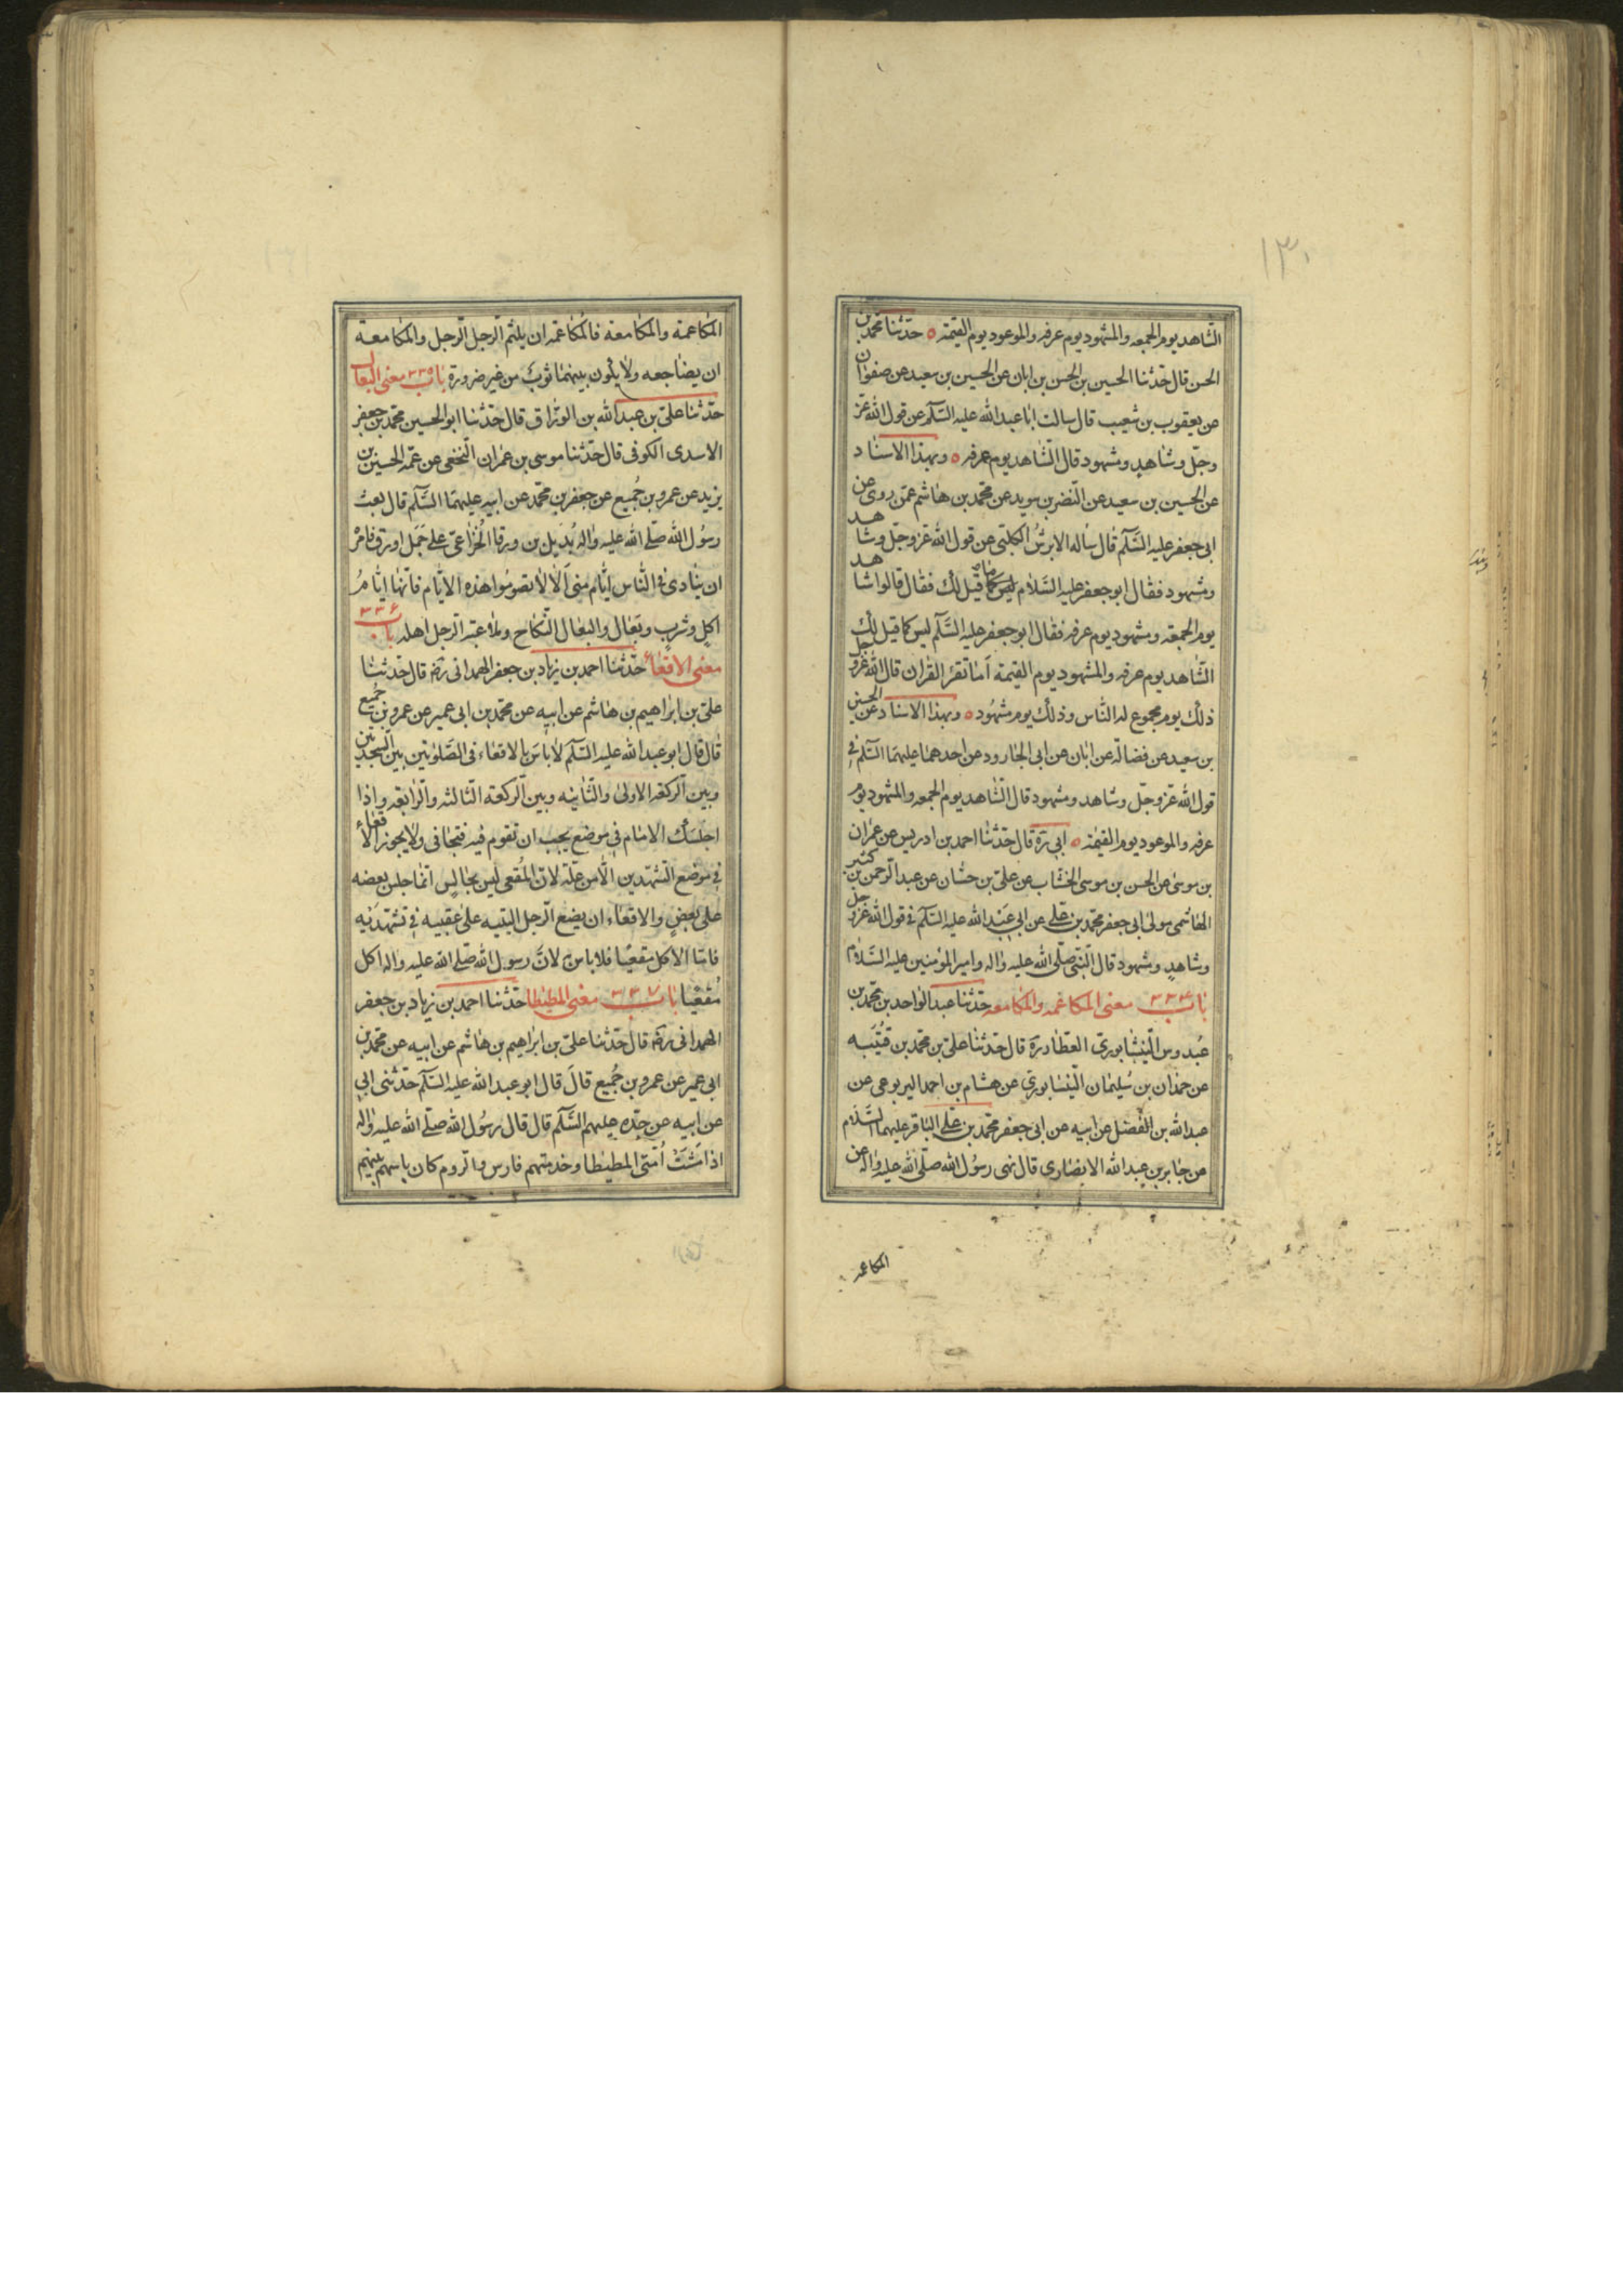 ۱۳۰
الشاهد يوم الجمعه والمشهود يوم عرفه والموعود يوم القيمة ٥ حدّثنا محمد بن
الحسن قال حدّثنا الحسين بن الحسن بن ابان عن الحسين بن سعيد عن صفوان
عن يعقوب بن شعيب قال سالت ابا عبد الله عليه السّلم عن قول الله عزّ
وجلّ وشاهدٍ ومشهود قال الشّاهد يوم عرفه ٥ وبهذا الاسناد
عن الحسين بن سعيد عن النّضر بن سويد عن محمّد بن هاشم عمّن روى عن
ابى جعفر عليه السّلم قال ساله الابرش الكلبىّ عن قول الله عزّ وجلّ وشاهد
ومشهود فقال ابو جعفر عليه السّلام ما قيل لك فقال قالوا شاهد
يوم الجمعة ومشهود يوم عرفه فقال ابو جعفر عليه السّلم ليس كما قيل لك
الشّاهد يوم عرفه والمشهود يوم القيمة اَما تقرء القران قال الله عزّ وجل
ذلك يوم مجموع له الناس وذلك يوم مشهُود ٥ وبهذا الاسناد عن الحسين
بن سعيد عن فضالة عن ابان عن ابى الجارود عن احدهما عليهما السّلم فى
قول الله عزّ وجلّ وشاهد ومشهود قال الشّاهد يوم الجمعه والمشهود يوم
عرفه والموعود يوم القيمة ٥ ابى رَه قال حدّثنا احمد بن ادريس عن عمران
بن موسى عن الحسن بن موسى الخشّاب عن علىّ بن حسّان عن عبد الرّحمن بن كثير
الهاشمى مولى ابى جعفر محمّد بن علي عن ابى عَبْد الله عليه السّلم فى قول الله عزّ وجل
وشاهدٍ ومشهود قال النّبىّ صلّى الله عليه واله وامير المؤمنين عليه السَّلام
باب ٣٣٤ معنى المكاعمه والمكامعه حدّثنا عبد الواحد بن محمّد بن
عُبدوس النّيشابورىّ العطّار رَه قال حدّثنا علىّ بن محمّد بن قُتَيبَه
عن حمدان بن سُليمان النّيشابورىّ عن هشام بن احمد اليربوعى عن
عبد الله بن الفضل عن ابيه عن ابى جعفر محمّد بن علي الباقر عليهما السّلام
عن جابر بن عبد الله الانصارى قال نهى رسُول الله صلّى الله عليه واله عن
المكاعمه
المكاعمة والمكامعة فالمُكاعمة ان يلثم الرّجل الرّجل والمكامعة
ان يضاجعه ولا يكون بينهما ثوبَ من غير ضرورة باب ٣٣٥ معنى البعال
حدّثنا علىّ بن عبد الله بن الورّاق قال حدّثنا ابو الحسين محمّد بن جعفر
الاسدى الكوفى قال حدّثنا موسى بن عمران النّخعى عن عمّه الحسين بن
يزيد عن عمرو بن جُميع عن جعفر بن محمّد عن ابيه عليهما السَّلم قال بعث
رسُول الله صلّے الله عليه واله بُدَيل بن ورقا الخُزاعىّ علے جَمَل اورق فامر
ان ينادى فى الناس ايّام منى اَلا لا تصوموا هذه الايّام فانّها ايّامُ
اكلٍ وشربٍ وبعَال والبعَال النّكاح وملاعبة الرّجل اهله باب ٣٣٦
معنى الاقعاء حدّثنا احمد بن زياد بن جعفر الهمدانى رضه قال حدّثنا
علىّ بن ابراهيم بن هاشم عن ابيه عن محمّد بن ابى عمير عن عمرو بن جُميع
قال قال ابو عبد الله عليه السّلم لا بأسَ بالاقعاء فى الصّلوتين بين السّجدتين
وبين الرّكعة الاولى والثّانيه وبين الرّكعة الثّالثه والرّابعة واذا
اجلسَك الامام فى موضع يجب ان تقوم فيه فتجافى ولا يجوز الاقعاء
فى موضع التّشهّدين الّا من علّة لانّ المُقعى ليس بجالسٍ انّما جلس بعضه
على بعضٍ والاقعاء ان يضع الرّجل اليتيه على عَقبيه فى تشهّدَيْه
فامّا الاكل مقعيًا فلا باس لانَّ رسول الله صلّے الله عليه واله اكل
مُقعيًا باب ٣٣٧ معنى المطيطا حدّثنا احمد بن زياد بن جعفر
الهمدانى رضه قال حدّثنا علىّ بن ابراهيم بن هاشم عن ابيه عن محمّد بن
ابى عمير عن عمرو بن جُميع قالَ قال ابو عبد الله عليه السّلم حدّثنى ابى
عن ابيه عن جدّه عليهم السَّلم قال قال رسُول الله صلّے الله عليه واله
اذا مَشَتْ اُمّتى المطيطا وخدمتهم فارس والرّوم كان باسهم بينهم